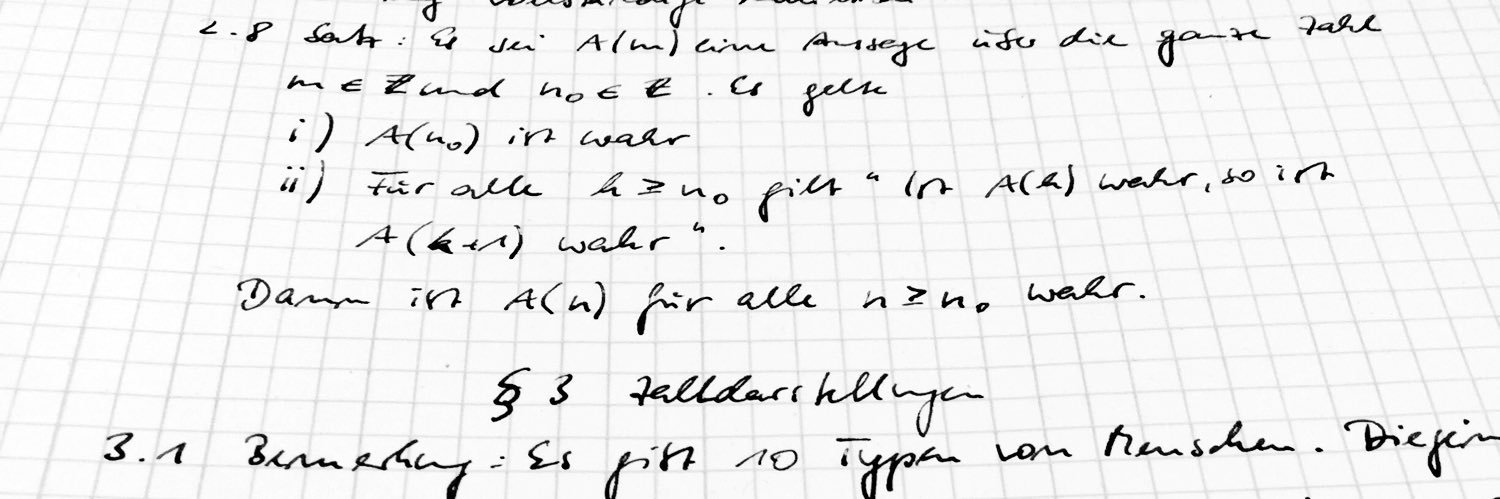 2.8 Satz: Es sei A(m) eine Aussage über die ganze Zahl
m ∈ ℤ und n₀ ∈ ℤ. Es gelte
i) A(n₀) ist wahr
ii) Für alle k ≥ n₀ gilt "Ist A(k) wahr, so ist
A(k+1) wahr".
Dann ist A(n) für alle n ≥ n₀ wahr.
§ 3 Zahldarstellungen
3.1 Bemerkung: Es gibt 10 Typen von Menschen.